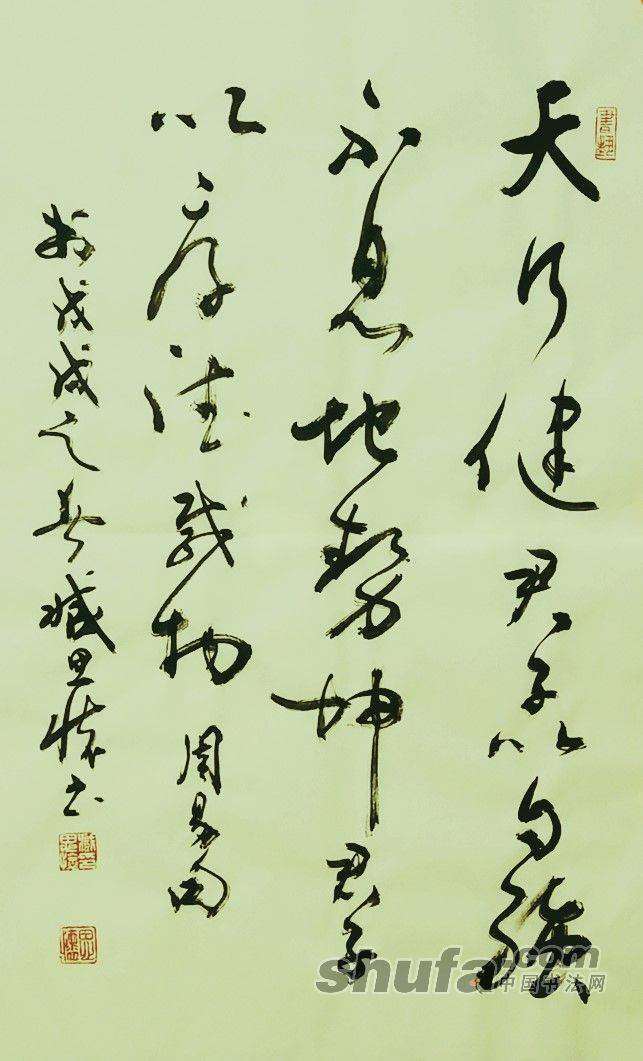 天行健君子以自强
不息地势坤君子
以厚德载物 周易句
於戊戌之春臧思怀书
書藝
shufa.com
中国书法网